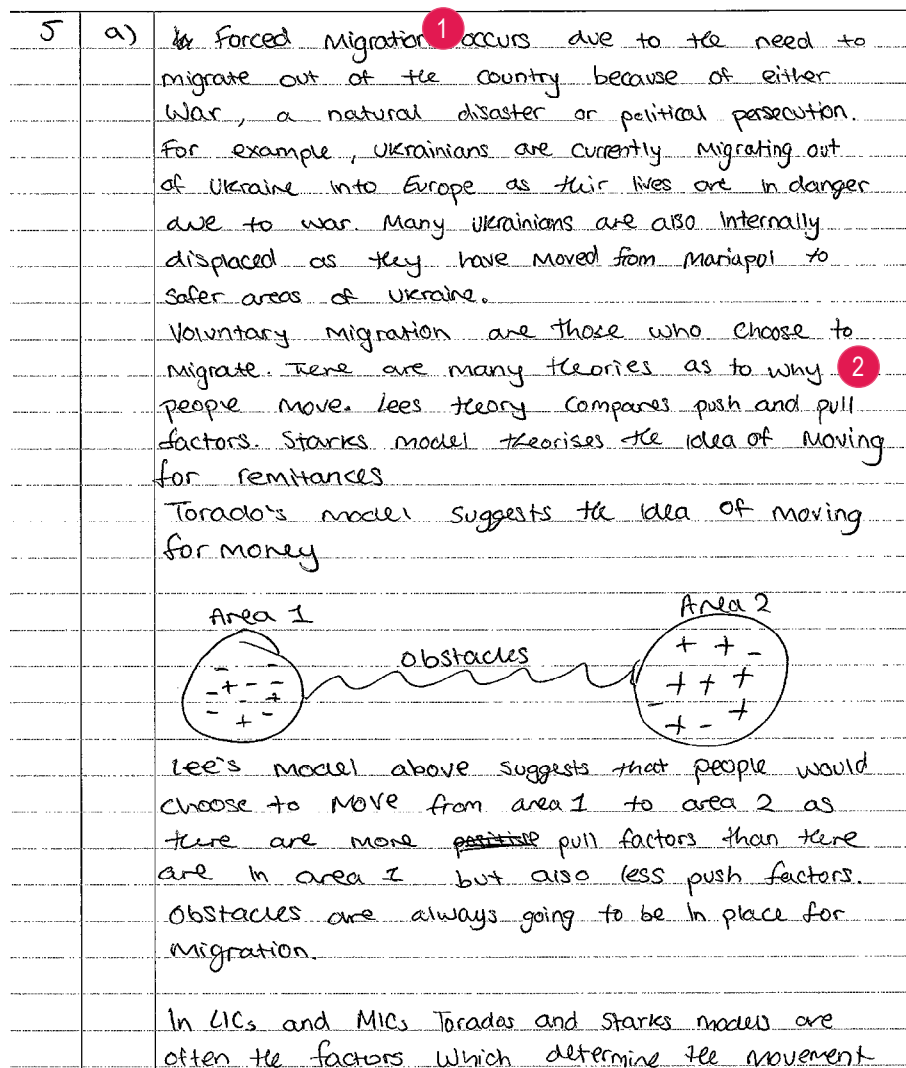 5 a) Forced Migration 1 occurs due to the need to
migrate out of the country because of either
War, a natural disaster or political persecution.
For example, Ukrainians are currently Migrating out
of Ukraine into Europe as thir lives are in danger
due to war. Many Ukrainians are also internally
displaced as they have moved from Mariapol to
safer areas of Ukraine.
Voluntary Migration are those who choose to
Migrate. There are many theories as to why 2
people move. Lees theory compares push and pull
factors. Starks model theorises the idea of moving
for remitances
Torado's model suggests the idea of moving
for money
Area 1
Area 2
obstacles
- + - -
- - - +
- + -
+ + -
+ + +
- + - +
Lee's model above suggests that people would
choose to move from area 1 to area 2 as
there are more positive pull factors than there
are in area 1 but also less push factors.
Obstacles are always going to be in place for
Migration.
In LICs and MICs Torados and Starks models are
often the factors which determine the movement